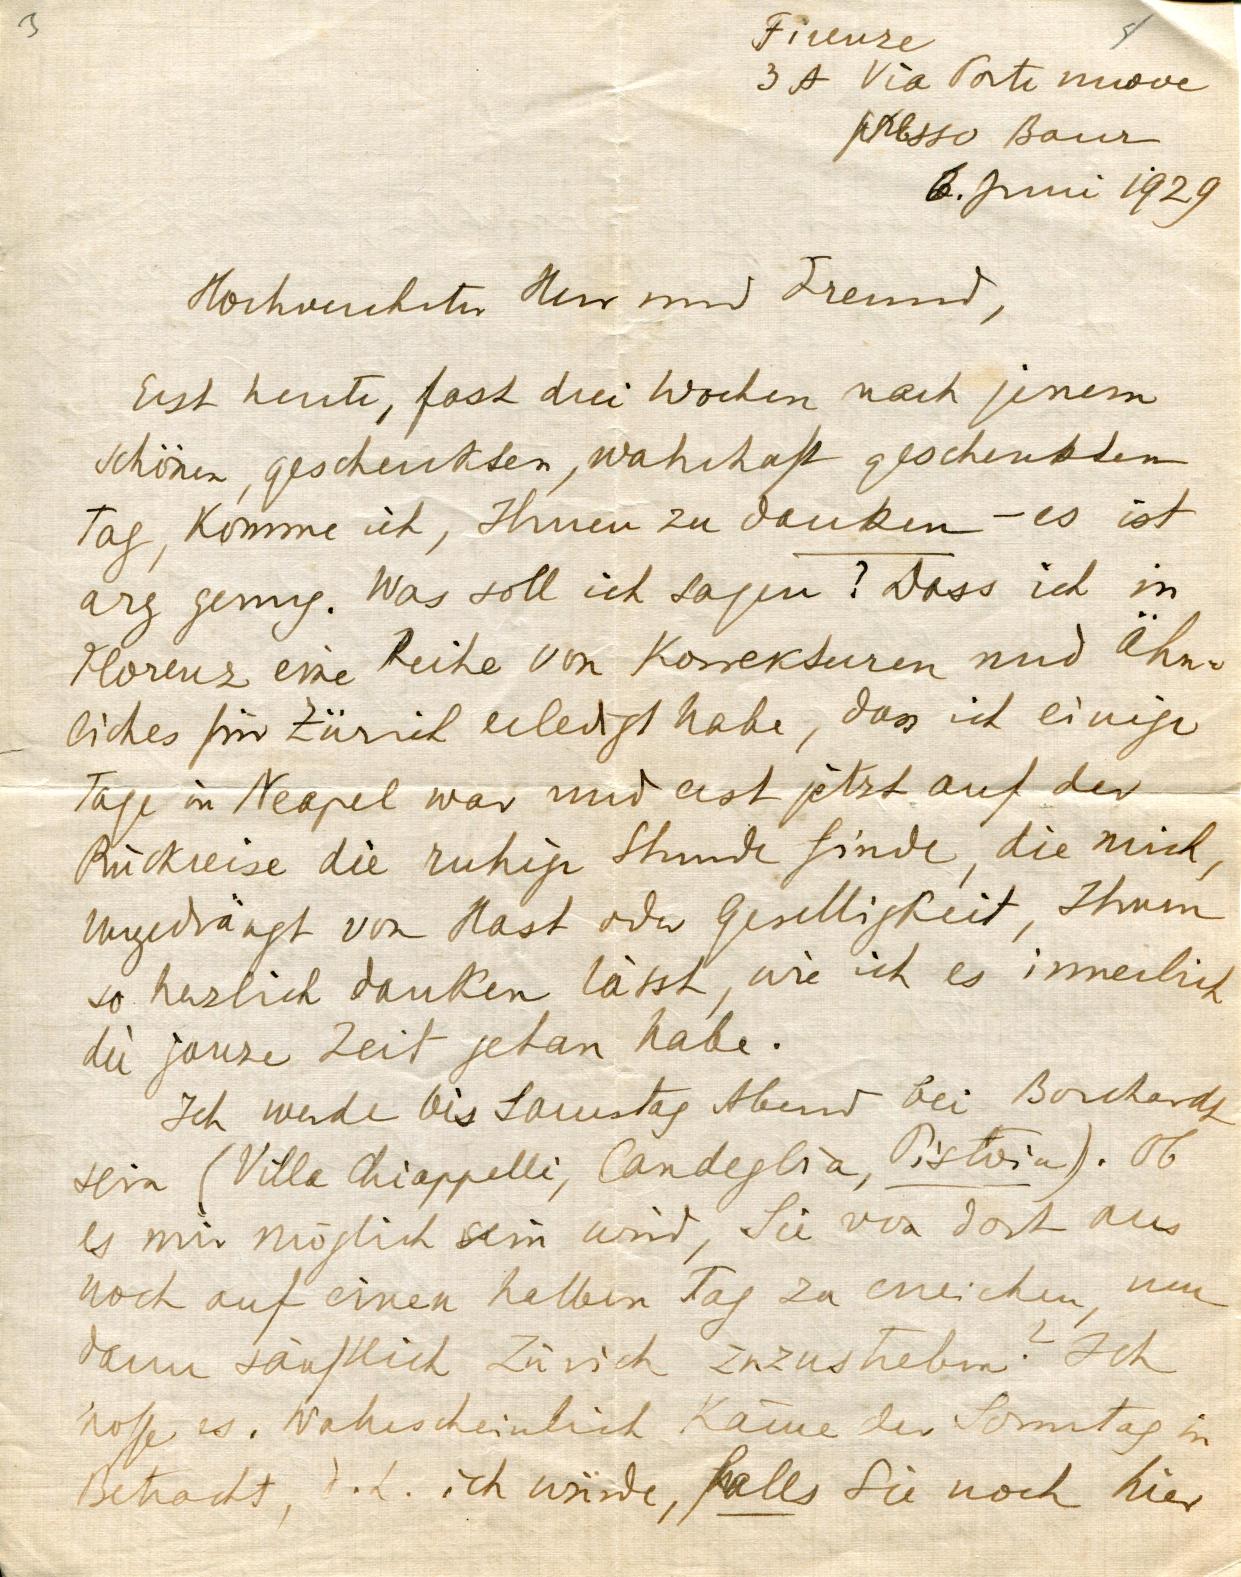 3
Firenze
3 A Via Porte nuove
presso Baur
6. Juni 1929
Hochverehrter Herr und Freund,
Erst heute, fast drei Wochen nach jenem
schönen, geschenkten, wahrhaft geschenkten
Tag, komme ich, Ihnen zu danken – es ist
arg genug. Was soll ich sagen? Dass ich in
Florenz eine Reihe von Korrekturen und Ähn-
liches für Zürich erledigt habe, dass ich einige
Tage in Neapel war und erst jetzt auf der
Rückreise die ruhige Stunde finde, die mich,
ungedrängt von Hast oder Geselligkeit, Ihnen
so herzlich danken lässt, wie ich es innerlich
die ganze Zeit getan habe.
Ich werde bis Samstag Abend bei Borchardt
sein (Villa Chiappelli, Candeglia, Pistoia). Ob
es mir möglich sein wird, Sie von dort aus
noch auf einen halben Tag zu erreichen, um
dann sänftlich Zürich zuzustreben? Ich
hoffe es. Wahrscheinlich käme der Sonntag in
Betracht, d. h. ich würde, falls Sie noch hier